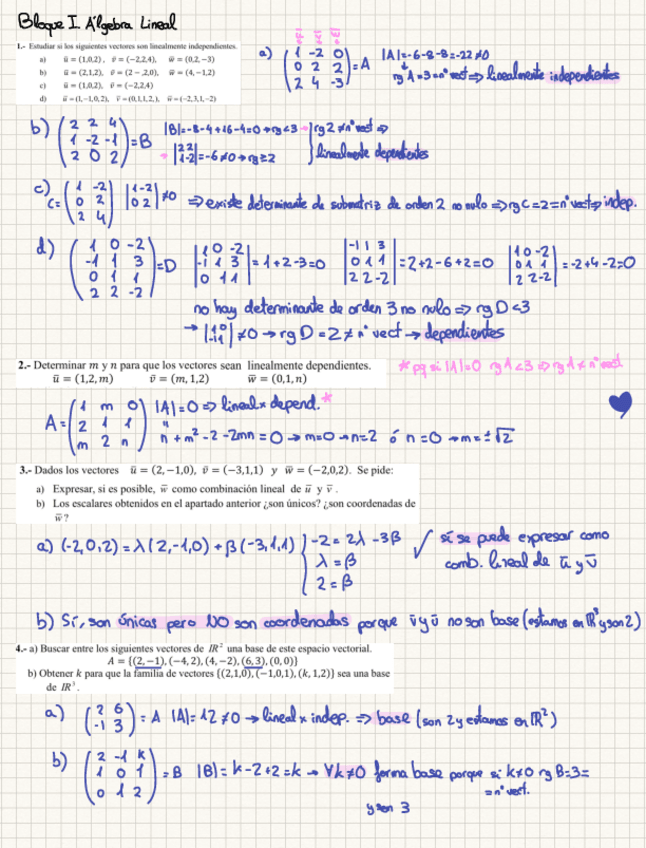 Bloque I. Álgebra Lineal
1.- Estudiar si los siguientes vectores son linealmente independientes.
a) ū = (1,0,2), v̄ = (-2,2,4), w̄ = (0,2,-3)
b) ū = (2,1,2), v̄ = (2-,2,0), w̄ = (4,-1,2)
c) ū = (1,0,2), v̄ = (-2,2,4)
d) ū = (1,-1,0,2), v̄ = (0,1,1,2,), w̄ = (-2,3,1,-2)
a) (1 -2 0
0 2 2
2 4 -3) = A |A| = -6-8-8 = -22 ≠ 0
rg A = 3 = nº vect ⇒ linealmente independientes
b) (2 2 4
1 -2 -1
2 0 2) = B |B| = -8-4+16-4 = 0 → rg < 3 → rg 2 ≠ nº vect ⇒
|2 2
1 -2| = -6 ≠ 0 → rg ≥ 2 linealmente dependientes
c) C = (1 -2
0 2
2 4) |1 -2
0 2| ≠ 0 ⇒ existe determinante de submatriz de orden 2 no nulo ⇒ rg C = 2 = nº vect ⇒ indep.
d) (1 0 -2
-1 1 3
0 1 1
2 2 -2) = D |1 0 -2
-1 1 3
0 1 1| = 1+2-3 = 0 |-1 1 3
0 1 1
2 2 -2| = 2+2-6+2 = 0 |1 0 -2
0 1 1
2 2 -2| = -2+4-2 = 0
no hay determinante de orden 3 no nulo ⇒ rg D < 3
→ |1 0
-1 1| ≠ 0 → rg D = 2 ≠ nº vect → dependientes
2.- Determinar m y n para que los vectores sean linealmente dependientes.
ū = (1,2,m) v̄ = (m,1,2) w̄ = (0,1,n)
* pq si |A| = 0 rg A < 3 ⇒ rg A ≠ nº vect
A = (1 m 0
2 1 1
m 2 n) |A| = 0 ⇒ lineal x depend. *
n + m² - 2 - 2mn = 0 → m = 0 → n = 2 ó n = 0 → m = ±√2
3.- Dados los vectores ū = (2,-1,0), v̄ = (-3,1,1) y w̄ = (-2,0,2). Se pide:
a) Expresar, si es posible, w̄ como combinación lineal de ū y v̄ .
b) Los escalares obtenidos en el apartado anterior ¿son únicos? ¿son coordenadas de
w̄ ?
a) (-2,0,2) = λ(2,-1,0) + β(-3,1,1) } -2 = 2λ - 3β
λ = β
2 = β
✓ sí se puede expresar como
comb. lineal de ū y v̄
b) Sí, son únicas pero NO son coordenadas porque v̄ y ū no son base (estamos en ℝ³ y son 2)
4.- a) Buscar entre los siguientes vectores de IR² una base de este espacio vectorial.
A = {(2,-1),(-4,2),(4,-2),(6,3),(0,0)}
b) Obtener k para que la familia de vectores {(2,1,0),(-1,0,1),(k,1,2)} sea una base
de IR³.
a) (2 6
-1 3) = A |A| = 12 ≠ 0 → lineal x indep. ⇒ base (son 2 y estamos en ℝ²)
b) (2 -1 k
1 0 1
0 1 2) = B |B| = k-2+2 = k → ∀k ≠ 0 forma base porque si k ≠ 0 rg B = 3 =
= nº vect.
y son 3